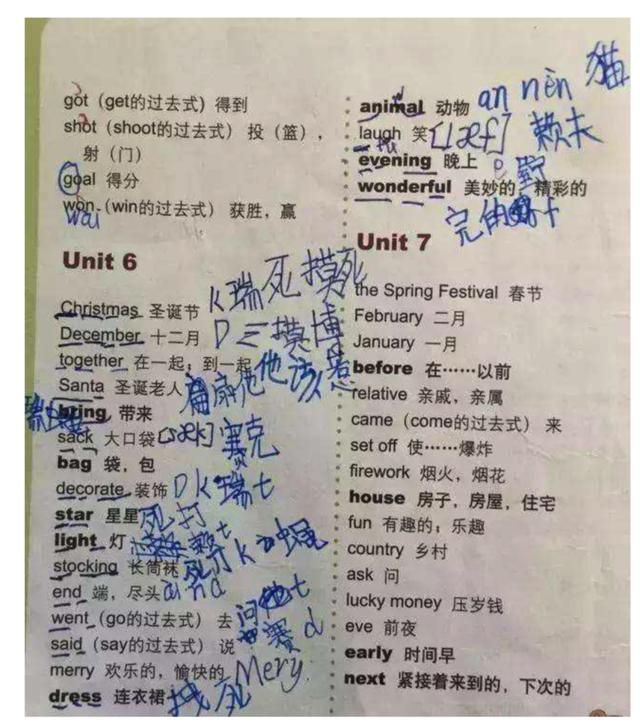 got (get的过去式) 得到
shot (shoot的过去式) 投（篮），
射（门）
goal 得分
won (win的过去式) 获胜，赢
wai
Unit 6
Christmas 圣诞节 K瑞死摸死
December 十二月 D三摸博
together 在一起；到一起 他该惹
Santa 圣诞老人
bring 带来
sack 大口袋 [sæk] 赛克
bag 袋，包
decorate 装饰 D K瑞t
star 星星 死打
light 灯 t
stocking 长筒袜 死打k
end 端，尽头 aind
went (go的过去式) 去 问他t
said (say的过去式) 说 赛d
merry 欢乐的，愉快的 Mery
dress 连衣裙
animal 动物 an nèn 猫
laugh 笑 [læf] 赖夫
evening 晚上
wonderful 美妙的，精彩的
Unit 7
the Spring Festival 春节
February 二月
January 一月
before 在……以前
relative 亲戚，亲属
came (come的过去式) 来
set off 使……爆炸
firework 烟火，烟花
house 房子，房屋，住宅
fun 有趣的；乐趣
country 乡村
ask 问
lucky money 压岁钱
eve 前夜
early 时间早
next 紧接着来到的，下次的